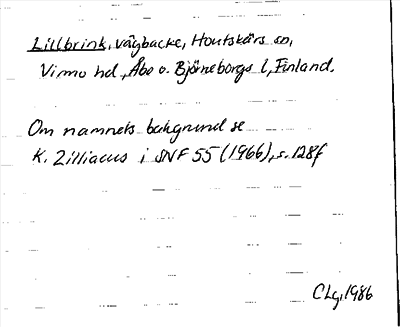 Lillbrink, vägbacke, Houtskärs sn,
Virmo hd, Åbo o. Björneborgs l, Finland.
Om namnets bakgrund se
K. Zilliacus i SNF 55 (1966), s. 128f
CLg, 1986